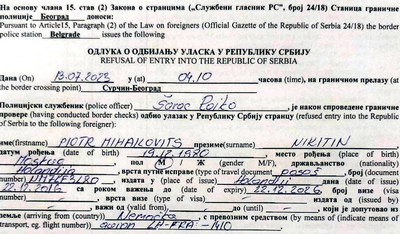 На основу члана 15. став (2) Закона о странцима („Службени гласник РС", број 24/18) Станица граничне
полиције Београд доноси:
Pursuant to Article15, Paragraph (2) of the Law on foreigners (Official Gazette of the Republic of Serbia 24/18) the border
police station Belgrade issues the following
ОДЛУКА О ОДБИЈАЊУ УЛАСКА У РЕПУБЛИКУ СРБИЈУ
REFUSAL OF ENTRY INTO THE REPUBLIC OF SERBIA
Дана (On) 13.07.2023 у (at) 04.10 часова (time), на граничном прелазу (at
the border crossing point) Сурчин-Београд
Полицијски службеник (police officer) је након спроведене граничне
провере (having conducted border checks) одбио улазак у Републику Србију странцу (refused entry into the Republic
of Serbia to the following foreigner):
име(firstname) PIOTR MIHAILOVITS презиме(surname) NIKITIN
датум рођења (date of birth) 19.12.1980, место рођења (place of birth)
Moskva пол М Ж (gender M/F), држављанство (nationality)
Holandija, врста путне исправе (type of travel document) pasoš, број (document
number) издата у (place of issue) Holandija дана (date of issue)
22.12.2016 са роком важења до (date of expiry) 22.12.2026, број визе (visa
number) врста визе (type of visa) издата од (issued by)
важи од (valid from) до (until) који је допутовао из
земље (arriving from (country)) Nemačka, с превозним средством (by means of (indicate means of
transport, eg. flight number) avion LH-FRA-1410